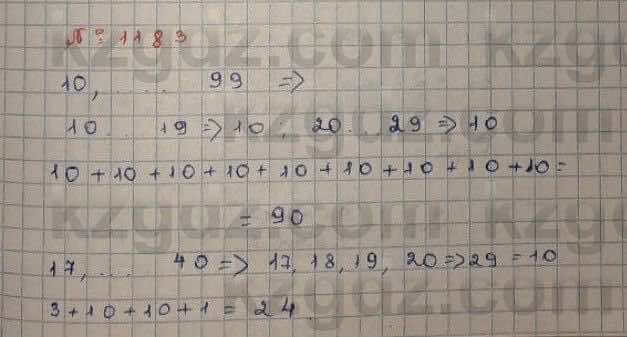 № 1183
10, ..... 99 =>
10 ... 19 => 10 ; 20 ... 29 => 10
10 + 10 + 10 + 10 + 10 + 10 + 10 + 10 + 10 =
= 90
17, .... 40 => 17, 18, 19, 20 => 29 = 10
3 + 10 + 10 + 1 = 24.
kzgdz.com